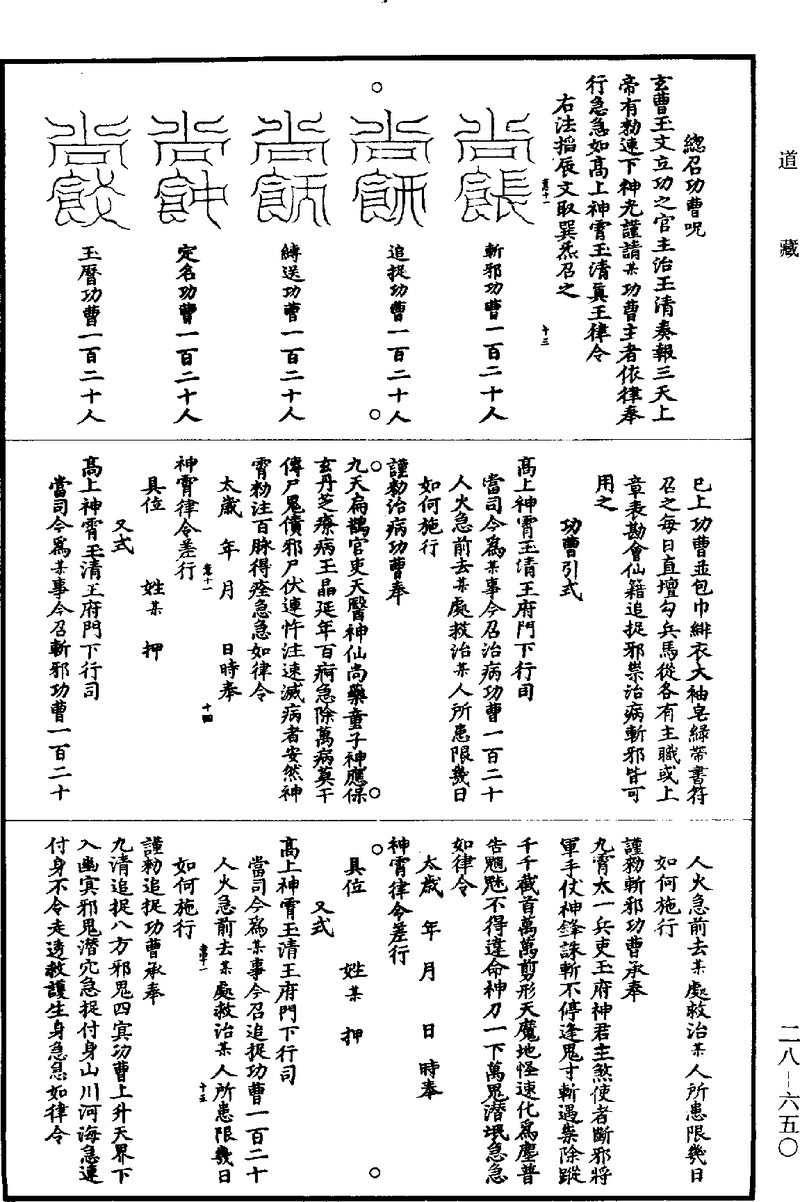 道藏
總召功曹呪
玄曹王文立功之官主治玉清奏報三天上
帝有勑速下神光謹請某功曹主者依律奉
行急急如高上神霄玉清真王律令
右法掐辰文取巽炁召之
斬邪功曹一百二十人
追捉功曹一百二十人
縛送功曹一百二十人
定名功曹一百二十人
玉曆功曹一百二十人
已上功曹並包巾緋衣大袖皂綠帶書符
召之每日直壇勾兵馬從各有主職或上
章表勘會仙籍追捉邪祟治病斬邪皆可
用之
功曹引式
高上神霄玉清王府門下行司
當司今為某事今召治病功曹一百二十
人火急前去某處救治某人所患限幾日
如何施行
謹勑治病功曹奉
九天扁鵲官吏天醫神仙尚藥童子神應保
玄丹芝療病王晶延年百痾急除萬病莫干
傳尸鬼債邪尸伏連忤注速滅病者安然神
霄勑注百脉得痊急急如律令
太歲 年 月 日時奉
神霄律令差行
具位 姓某 押
又式
高上神霄玉清王府門下行司
當司今為某事今召斬邪功曹一百二十
人火急前去某處救治某人所患限幾日
如何施行
謹勑斬邪功曹承奉
九霄太一兵吏玉府神君主煞使者斷邪將
軍手仗神鋒誅斬不停逢鬼寸斬遇祟除蹤
千千截首萬萬剪形天魔地怪速化為塵普
告魍魅不得違命神刀一下萬鬼潛垊急急
如律令
太歲 年 月 日 時奉
神霄律令差行
具位 姓某 押
又式
高上神霄玉清王府門下行司
當司今為某事今召追捉功曹一百二十
人火急前去某處救治某人所患限幾日
如何施行
謹勑追捉功曹承奉
九清追捉八方邪鬼四冥功曹上升天界下
入幽冥邪鬼潛穴急捉付身山川河海急速
付身不令走透救護生身急急如律令
二八-六五〇